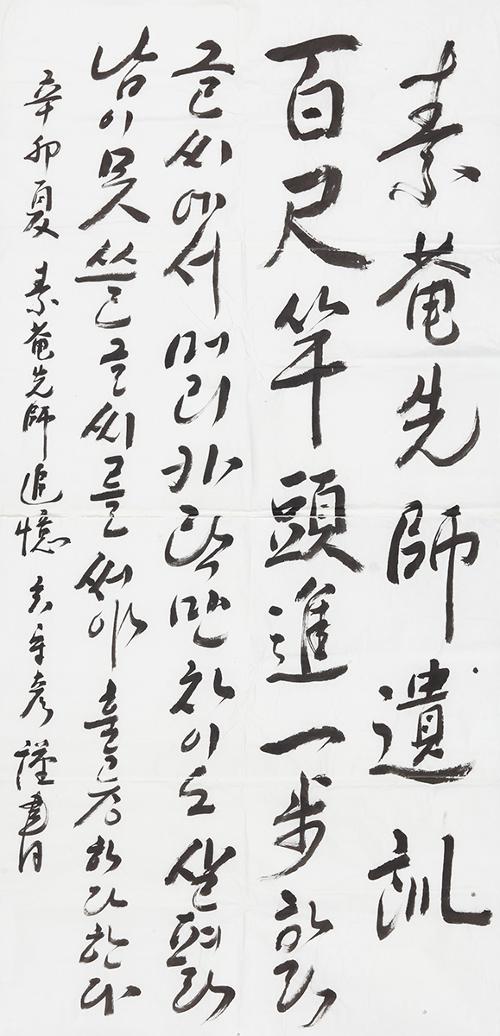 素菴先師遺訓
百尺竿頭進一步
글씨에서 머리카락만 차이도
남이 못 쓸 글씨를 써야 훌륭하다 한다
辛卯夏 素菴先師追憶 謹書